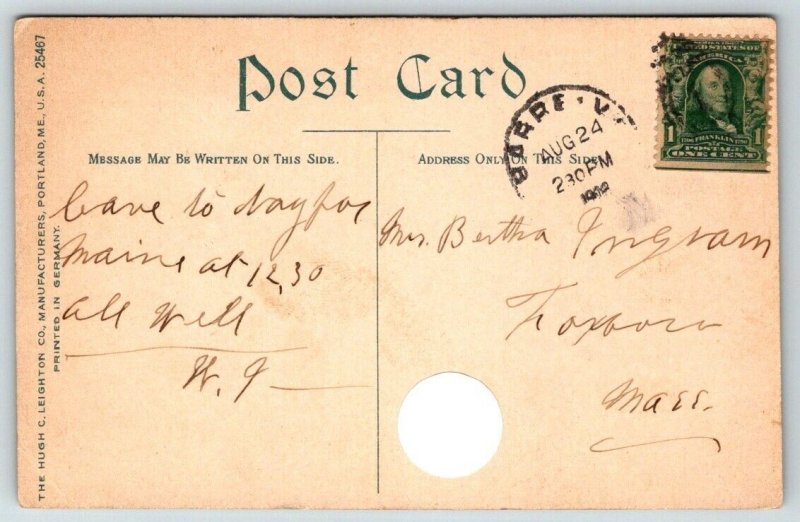 THE HUGH C. LEIGHTON CO., MANUFACTURERS, PORTLAND, ME., U.S.A. 25467
PRINTED IN GERMANY.
Post Card
MESSAGE MAY BE WRITTEN ON THIS SIDE.
leave to day for
Maine at 12,30
all Well
W. I
ADDRESS ONLY ON THIS SIDE
BARRE VT
AUG 24
230PM
UNITED STATES OF
AMERICA
FRANKLIN
1 POSTAGE 1
ONE CENT
Mrs. Bertha Ingram
Foxboro
Mass.